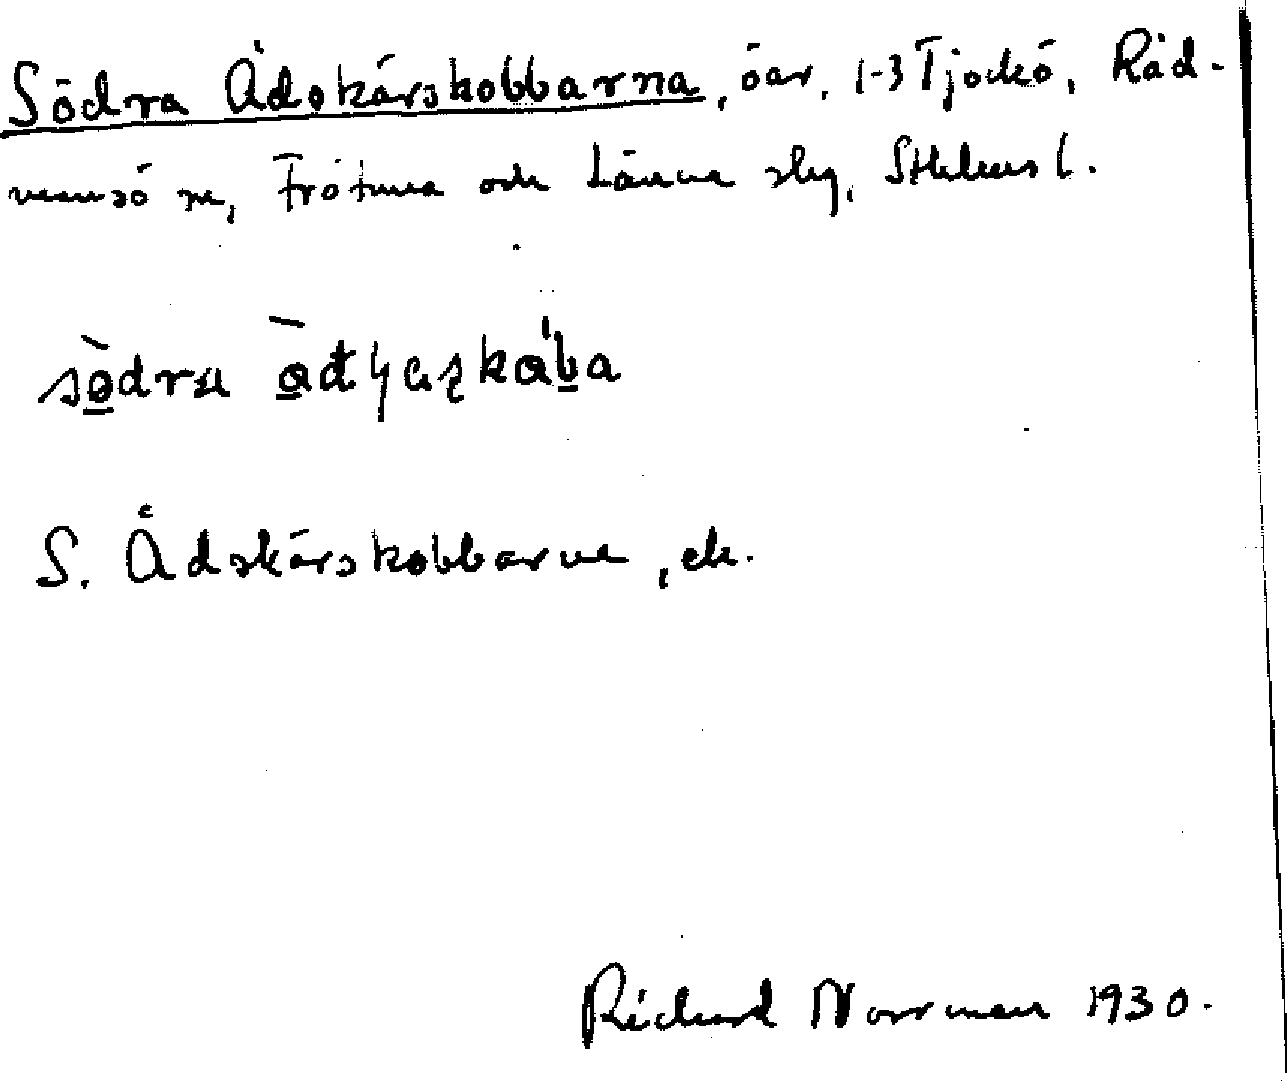 Södra Ådskärskobbarna, öar, 1-3 Tjockö, Råd-
mansö sn, Frötuna och Länna slg, Sthlms l.
södra ådʜaskåba
S. Ådskärskobbarna, ek.
Richard Norrman 1930.